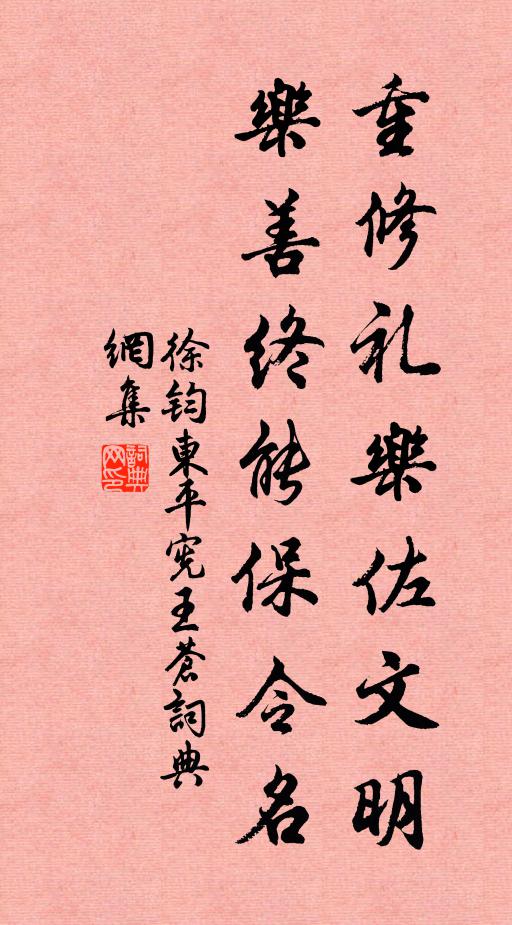 重修礼樂佐文明
樂善終能保令名
徐鈞東平宪王蒼詞典
網集
詞典
网印